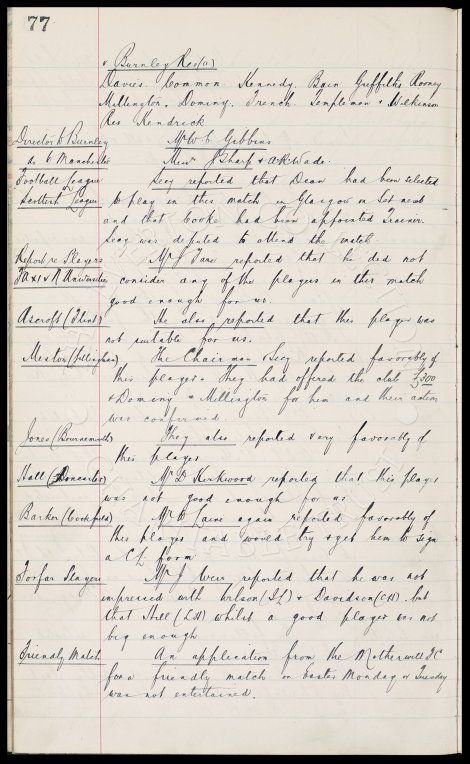 77
v Burnley Res (a)
Davies. Common. Kennedy. Bain Griffiths Rooney
Millington. Dominy. French. Templeman & Wilkinson
Res Kendrick
Director to Burnley Mr W C Gibbins
do to Manchester Messrs J Sharp & A K Wade.
Football League Secy reported that Dean had been selected
Scottish League to play in this match in Glasgow on Sat next
and that Cooke had been appointed Trainer.
Secy was deputed to attend the match
Report re Players Mr J Fare reported that he did not
consider any of the players in this match
good enough for us.
Ascroft (Flint) He also reported that this player was
not suitable for us.
Meston (Gillingham) The Chairman & Secy reported favorably of
this player. They had offered the club £300
& Dominy & Millington for him and their action
was confirmed.
Jones (Bournemouth) They also reported very favorably of
this player
Hall (Doncaster) Mr D Kirkwood reported that this player
was not good enough for us
Barker (Cockfield) Mr again reported favorably of
this player and would try & get him to sign
a C/L form
Forfar Players Mr J Weir reported that he was not
impressed with Wilson (IL) & Davidson (CH). but
that Hill (LH) whilst a good player was not
big enough
Friendly Match An application from the Motherwell FC
for a friendly match on Easter Monday or Tuesday
was not entertained.